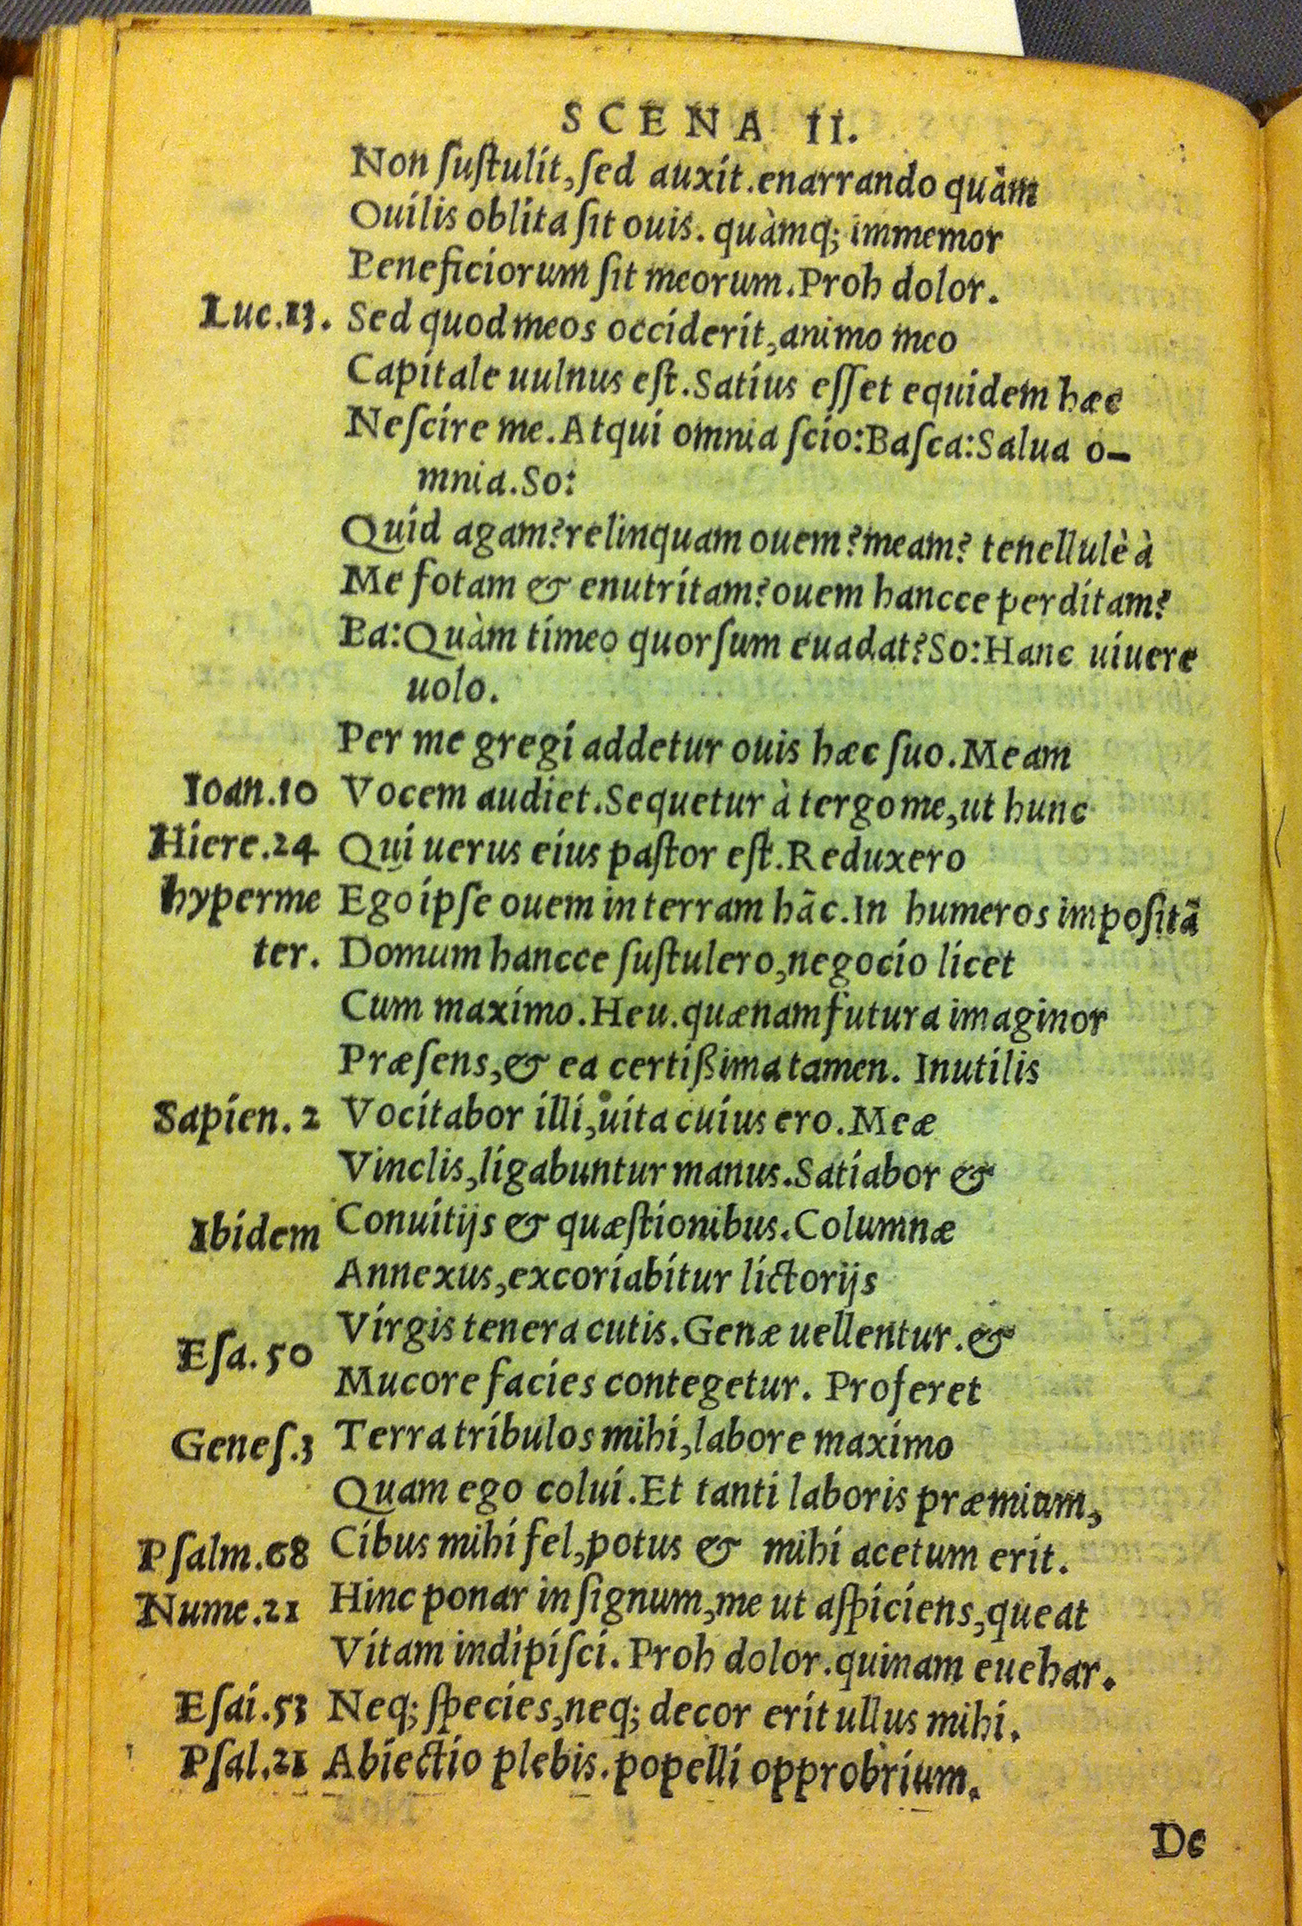 SCENA II.
Non ſuſtulit, ſed auxit. enarrando quàm
Ouilis oblita ſit ouis. quàmq; immemor
Beneficiorum ſit meorum. Proh dolor.
Luc.13. Sed quod meos occiderit, animo meo
Capitale uulnus eſt. Satius eſſet equidem hæc
Neſcire me. Atqui omnia ſcio: Baſca: Salua o-
mnia. So:
Quid agam? relinquam ouem? meam? tenellulè à
Me fotam & enutritam? ouem hancce perditam?
Ba: Quàm timeo quorſum euadat? So: Hanc uiuere
uolo.
Per me gregi addetur ouis hæc ſuo. Meam
Ioan.10 Vocem audiet. Sequetur à tergo me, ut hunc
Hiere.24 Qui uerus eius paſtor eſt. Reduxero
hyperme Ego ipſe ouem in terram hãc. In humeros impoſitã
ter. Domum hancce ſuſtulero, negocio licet
Cum maximo. Heu. quænam futura imaginor
Præſens, & ea certißima tamen. Inutilis
Sapien. 2 Vocitabor illi, uita cuius ero. Meæ
Vinclis, ligabuntur manus. Satiabor &
Ibidem Conuitijs & quæſtionibus. Columnæ
Annexus, excoriabitur lictorijs
Virgis tenera cutis. Genæ uellentur. &
Eſa. 50 Mucore facies contegetur. Proferet
Geneſ.3 Terra tribulos mihi, labore maximo
Quam ego colui. Et tanti laboris præmium,
Pſalm.68 Cibus mihi fel, potus & mihi acetum erit.
Nume.21 Hinc ponar in ſignum, me ut aſpiciens, queat
Vitam indipiſci. Proh dolor. quinam euehar.
Eſai.53 Neq; ſpecies, neq; decor erit ullus mihi.
Pſal.21 Abiectio plebis. popelli opprobrium.
De